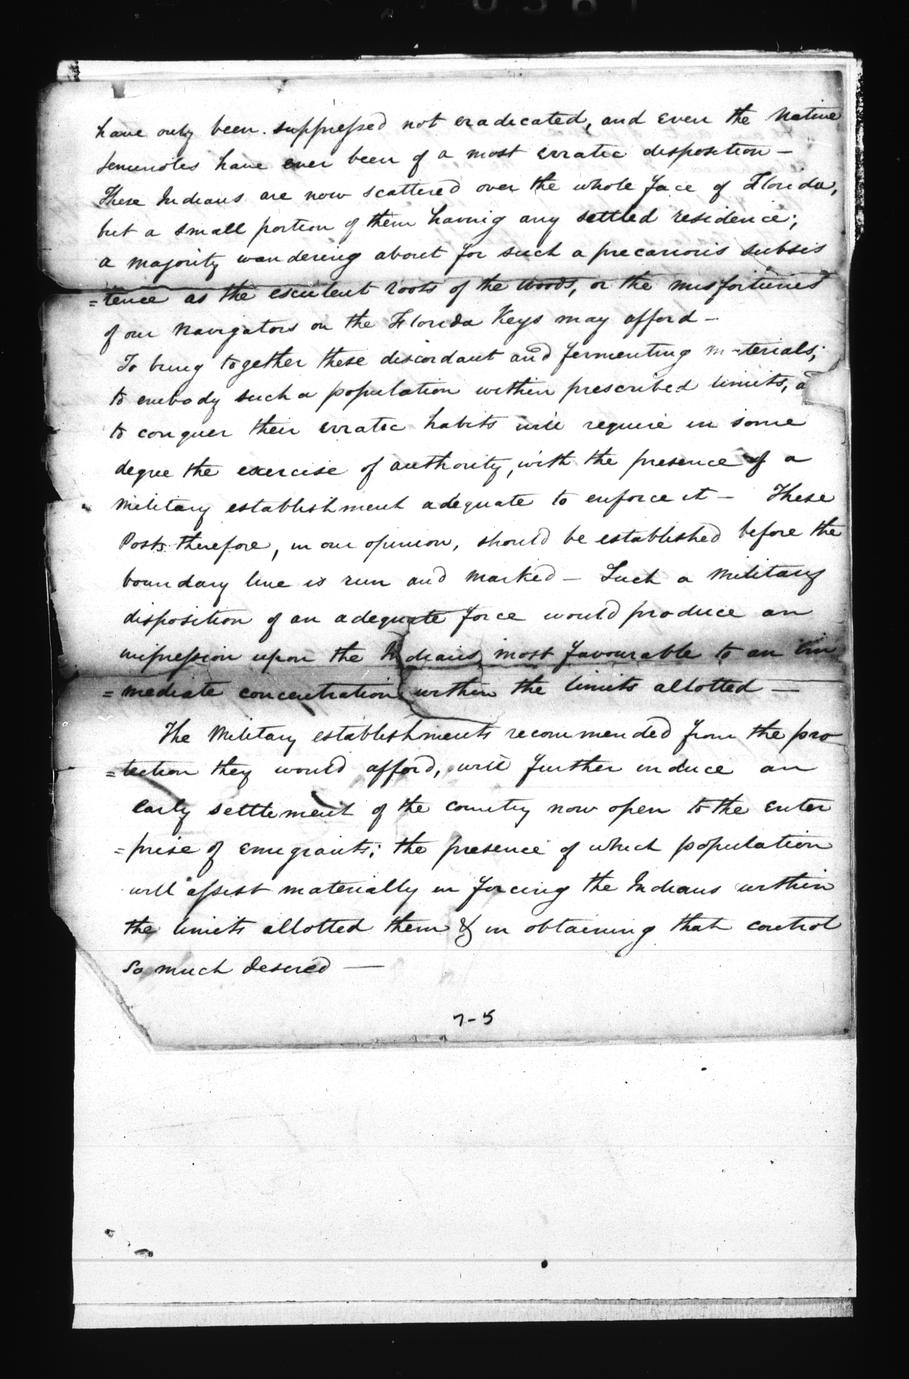 have only been suppressed not eradicated, and even the Native
Seminoles have ever been of a most erratic disposition —
These Indians are now scattered over the whole face of Florida,
but a small portion of them having any settled residence;
a majority wandering about for such a precarious subsis
=tence as the esculent roots of the woods, or the misfortunes
of our Navigators on the Florida Keys may afford —
To bring together these discordant and fermenting m-terials;
to embody such a population within prescribed limits, a
to conquer their erratic habits will require in some
degree the exercise of authority, with the presence of a
Military establishment adequate to enforce it — These
Posts therefore, in our opinion, should be established before the
boundary line is run and marked — Such a Military
disposition of an adequate force would produce an
impression upon the Indians most favourable to an im
=mediate concentration within the limits allotted —
The Military establishments recommended from the pro
=tection they would afford, will further induce an
early settlement of the country now open to the enter
=prise of emigrants; the presence of which population
will assist materially in forcing the Indians within
the limits allotted them & in obtaining that control
so much desired —
7-5